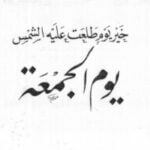 خَيرُ يَومٍ طَلَعَت عَلَيهِ الشَّمْسِ
يَومُ الجُمُعَة